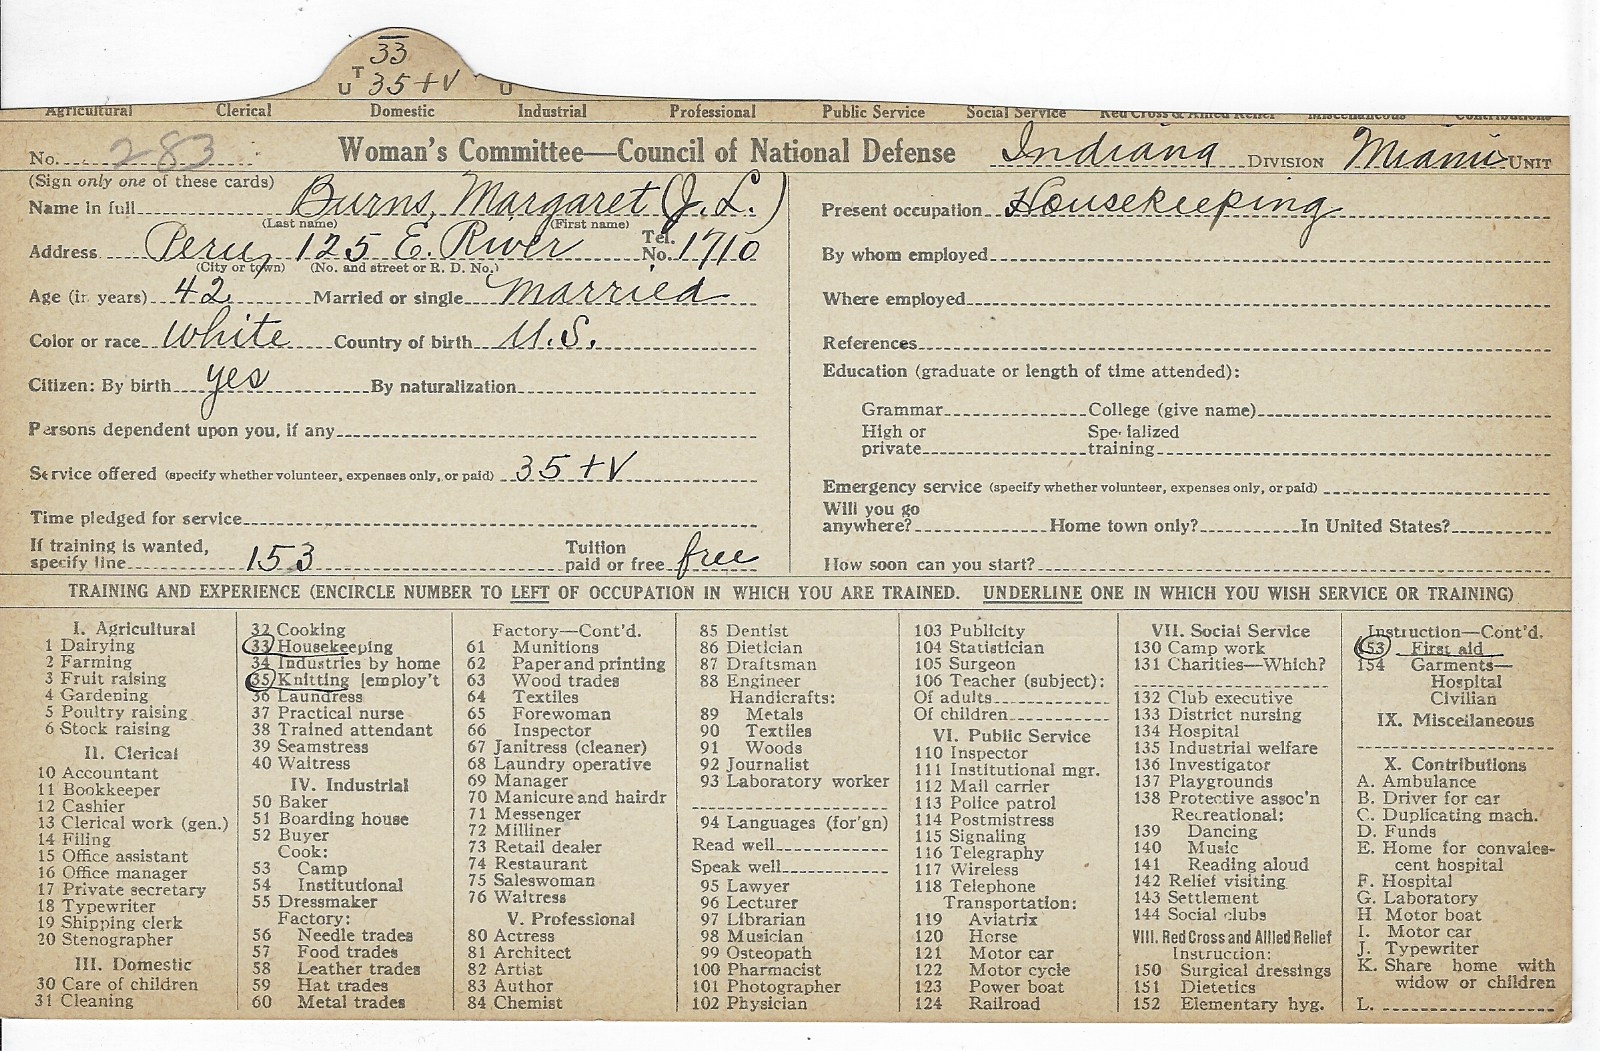 33
T
U 35 + V U
Agricultural Clerical Domestic Industrial Professional Public Service Social Service Red Cross & Allied Relief Miscellaneous Contributions
No. 283 Woman's Committee—Council of National Defense Indiana DIVISION Miami UNIT
(Sign only one of these cards)
Name in full Burns, Margaret (J. L.)
(Last name) (First name)
Address Peru, 125 E. River Tel. No. 1710
(City or town) (No. and street or R. D. No.)
Age (in years) 42 Married or single Married
Color or race White Country of birth U.S.
Citizen: By birth yes By naturalization
Persons dependent upon you, if any
Service offered (specify whether volunteer, expenses only, or paid) 35 + V
Time pledged for service
If training is wanted, specify line 153 Tuition paid or free free
Present occupation Housekeeping
By whom employed
Where employed
References
Education (graduate or length of time attended):
Grammar College (give name)
High or private Specialized training
Emergency service (specify whether volunteer, expenses only, or paid)
Will you go anywhere? Home town only? In United States?
How soon can you start?
TRAINING AND EXPERIENCE (ENCIRCLE NUMBER TO LEFT OF OCCUPATION IN WHICH YOU ARE TRAINED. UNDERLINE ONE IN WHICH YOU WISH SERVICE OR TRAINING)
I. Agricultural
1 Dairying
2 Farming
3 Fruit raising
4 Gardening
5 Poultry raising
6 Stock raising
II. Clerical
10 Accountant
11 Bookkeeper
12 Cashier
13 Clerical work (gen.)
14 Filing
15 Office assistant
16 Office manager
17 Private secretary
18 Typewriter
19 Shipping clerk
20 Stenographer
III. Domestic
30 Care of children
31 Cleaning
32 Cooking
33 Housekeeping
34 Industries by home
35 Knitting [employ't
36 Laundress
37 Practical nurse
38 Trained attendant
39 Seamstress
40 Waitress
IV. Industrial
50 Baker
51 Boarding house
52 Buyer
Cook:
53 Camp
54 Institutional
55 Dressmaker
Factory:
56 Needle trades
57 Food trades
58 Leather trades
59 Hat trades
60 Metal trades
Factory—Cont'd.
61 Munitions
62 Paper and printing
63 Wood trades
64 Textiles
65 Forewoman
66 Inspector
67 Janitress (cleaner)
68 Laundry operative
69 Manager
70 Manicure and hairdr
71 Messenger
72 Milliner
73 Retail dealer
74 Restaurant
75 Saleswoman
76 Waitress
V. Professional
80 Actress
81 Architect
82 Artist
83 Author
84 Chemist
85 Dentist
86 Dietician
87 Draftsman
88 Engineer
Handicrafts:
89 Metals
90 Textiles
91 Woods
92 Journalist
93 Laboratory worker
94 Languages (for'gn)
Read well
Speak well
95 Lawyer
96 Lecturer
97 Librarian
98 Musician
99 Osteopath
100 Pharmacist
101 Photographer
102 Physician
103 Publicity
104 Statistician
105 Surgeon
106 Teacher (subject):
Of adults
Of children
VI. Public Service
110 Inspector
111 Institutional mgr.
112 Mail carrier
113 Police patrol
114 Postmistress
115 Signaling
116 Telegraphy
117 Wireless
118 Telephone
Transportation:
119 Aviatrix
120 Horse
121 Motor car
122 Motor cycle
123 Power boat
124 Railroad
VII. Social Service
130 Camp work
131 Charities—Which?
132 Club executive
133 District nursing
134 Hospital
135 Industrial welfare
136 Investigator
137 Playgrounds
138 Protective assoc'n
Recreational:
139 Dancing
140 Music
141 Reading aloud
142 Relief visiting
143 Settlement
144 Social clubs
VIII. Red Cross and Allied Relief
Instruction:
150 Surgical dressings
151 Dietetics
152 Elementary hyg.
Instruction—Cont'd.
153 First aid
154 Garments—
Hospital
Civilian
IX. Miscellaneous
X. Contributions
A. Ambulance
B. Driver for car
C. Duplicating mach.
D. Funds
E. Home for convales-
cent hospital
F. Hospital
G. Laboratory
H. Motor boat
I. Motor car
J. Typewriter
K. Share home with
widow or children
L.